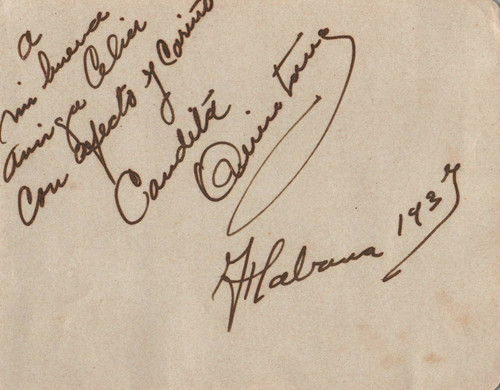 a
mi buena
amiga Celia
con afecto y cariño
Candita
Quintana
Habana 1937